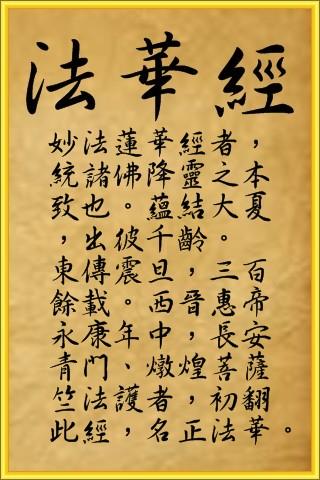 法華經
妙法蓮華經者，
統諸佛降靈之本
致也。蘊結大夏
，出彼千齡。
東傳震旦，三百
餘載。西晉惠帝
永康年中，長安
青門、燉煌菩薩
竺法護者，初翻
此經，名正法華。